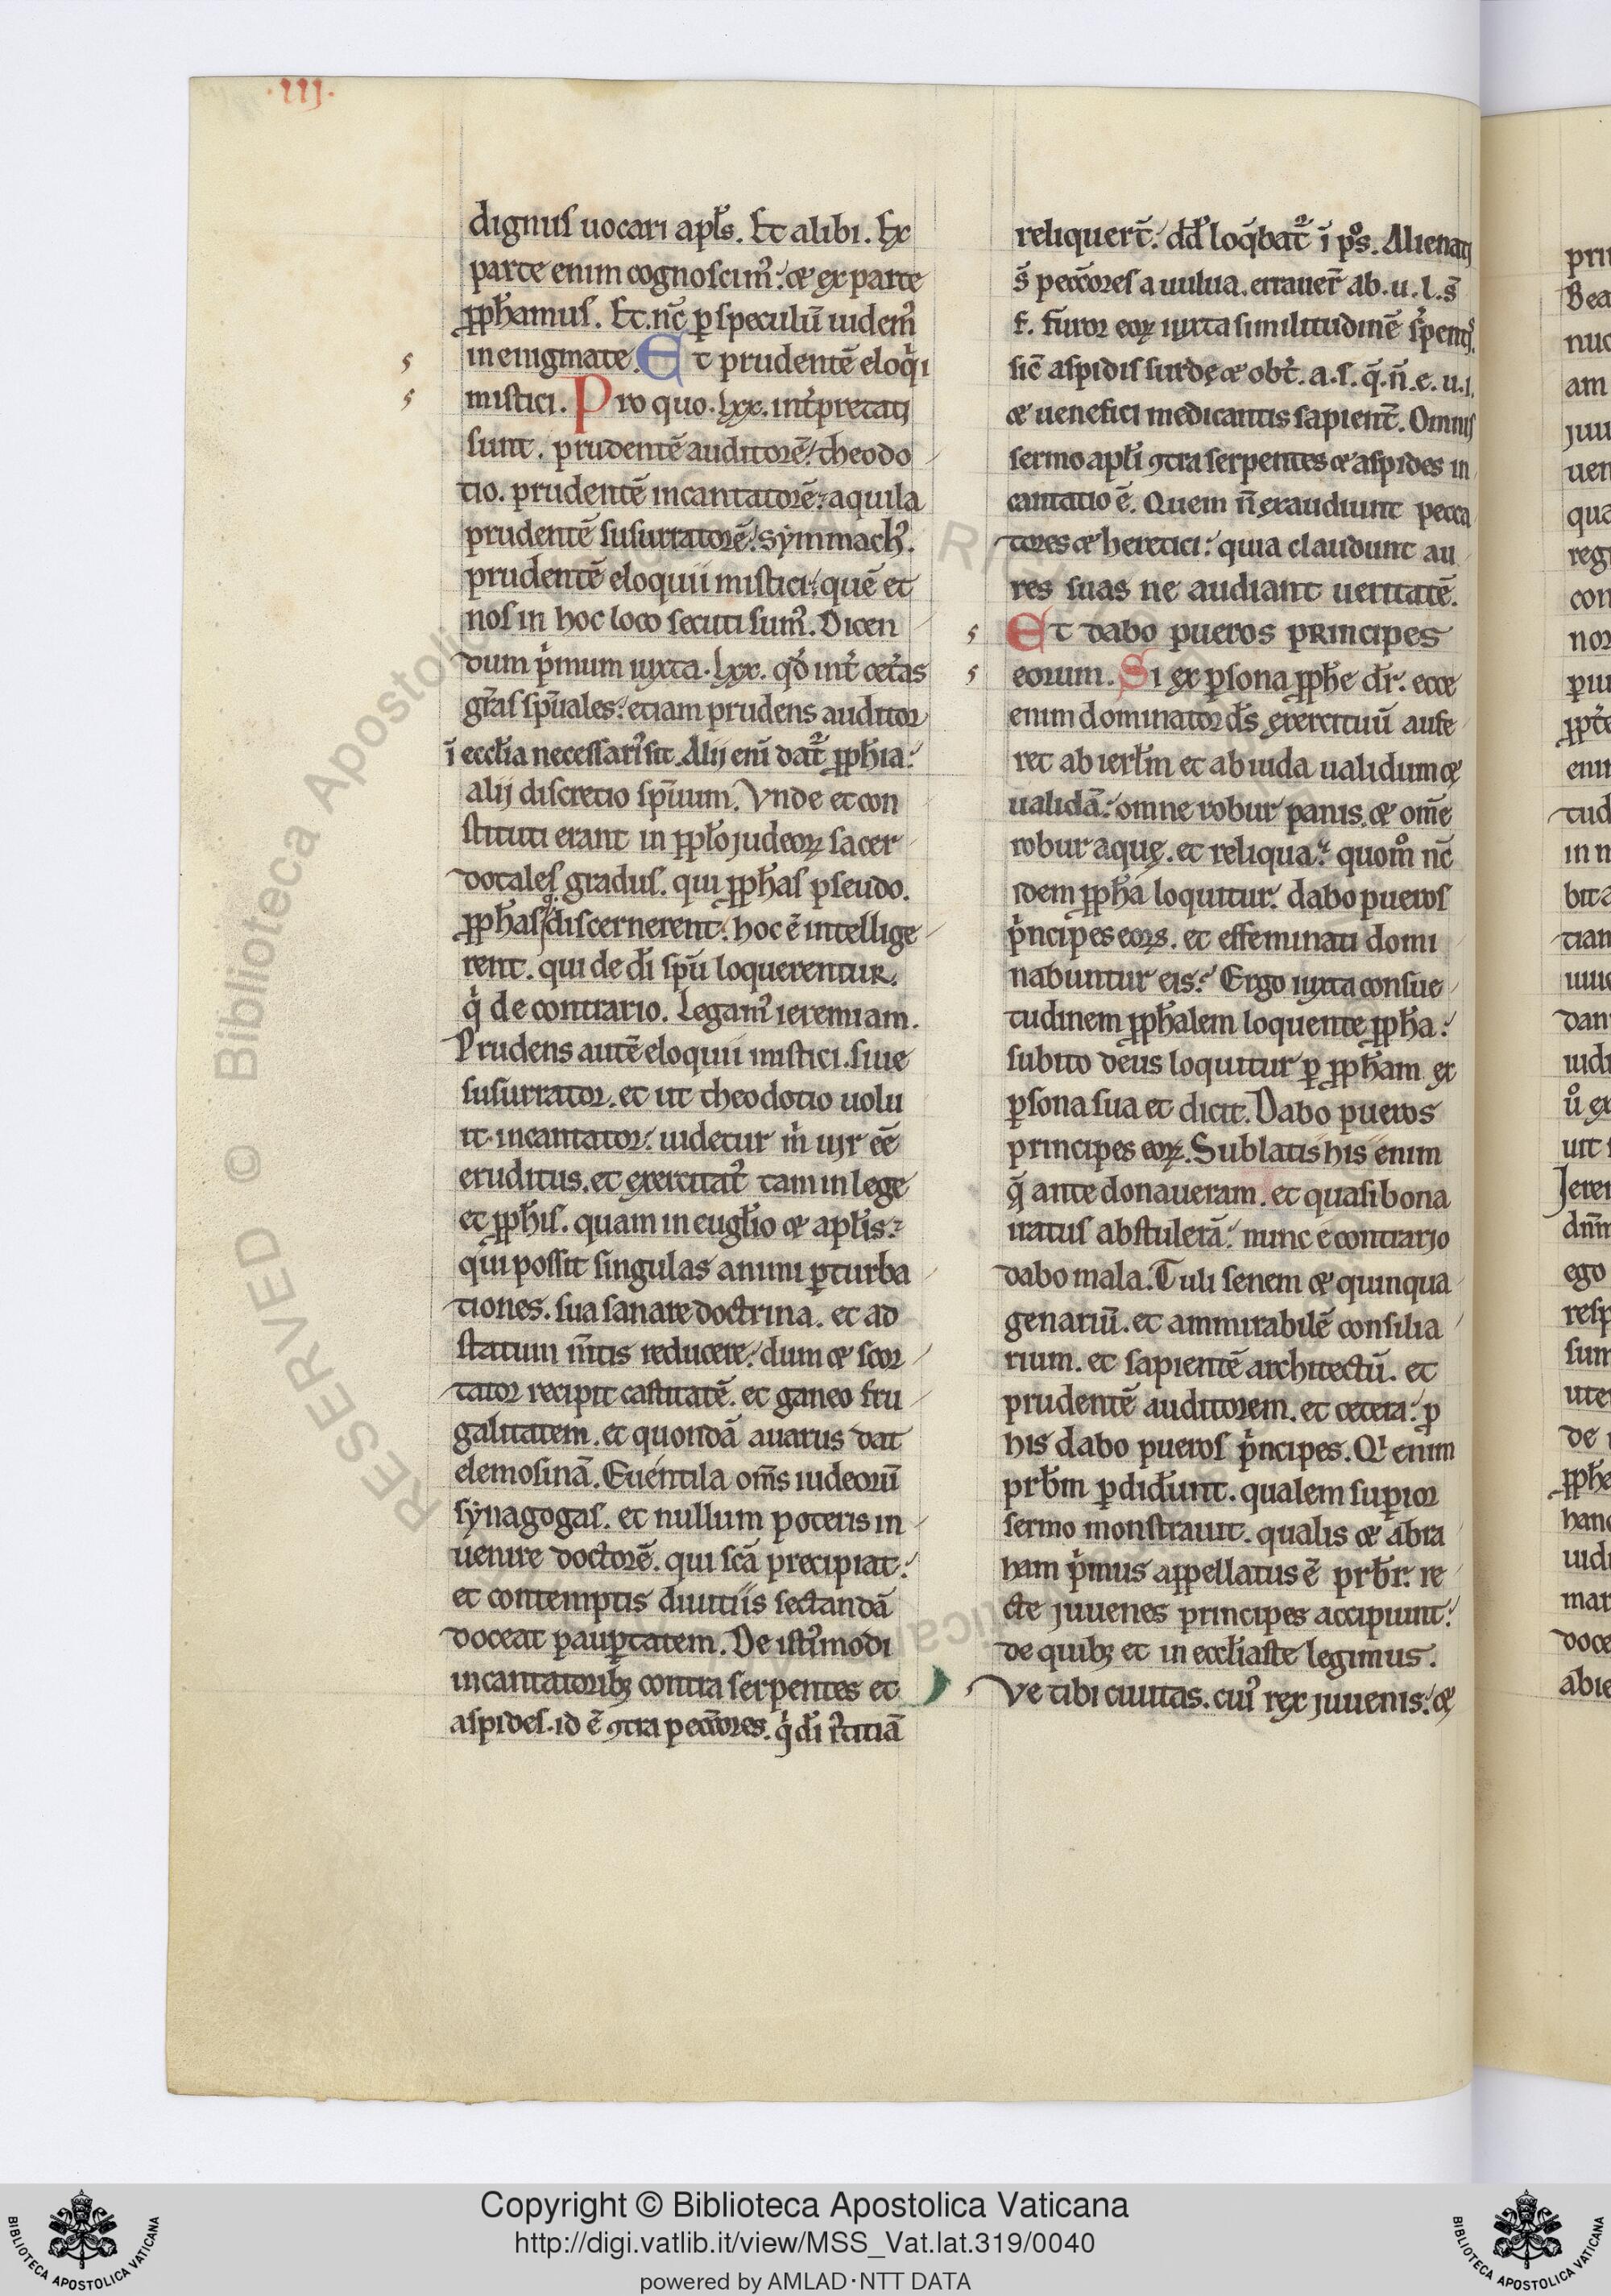 ·III·
dignus uocari apl̄s. Et alibi. Ex
parte enim cognoscimꝰ: & ex parte
ꝓph̄amus. Et. nc̄ ꝑ speculū uidemꝰ
in enigmate. Et prudentē eloqͥi
mistici. Pro quo. lxx. int̓pretati
sunt. prudentē auditorē: theodo
tio. prudentē incantatorē: aquila
prudentē susurratorē: symmachꝰ.
prudentē eloquii mistici: quē et
nos in hoc loco secuti sumꝰ. Dicen
dum pͥmum iuxta. lxx. qd̓ int̓ cet̓as
gr̄as sp̄uales: etiam prudens auditor
ī eccl̄ia necessariꝰ sit. Alij enī dat᷑ ꝓph̄ia:
alij discretio sp̄uum. Vnde et con
stituti erant in ppl̄o judeoꝝ sacer
dotales gradus. qui ꝓph̄as pseudo.
ꝓph̄asq; discernerent: hoc ē intellige
rent. qui de dī spū loquerentur.
qͥ de contrario. Legamꝰ ieremiam.
Prudens autē eloquii mistici. siue
susurrator. et ut theodotio uolu
it. incantator: uidetur m̄ uir eē
eruditus. et exercitatꝰ tam in lege
et ꝓph̄is. quam in eugl̄io & apl̄is:
qui possit singulas animi ꝑturba
tiones. sua sanare doctrina. et ad
statum m̄tis reducere: dum & scor
tator recipit castitatē. et ganeo fru
galitatem. et quondā auarus dat
elemosinā. Euentila om̄s iudeorū
synagogas. et nullum poteris in
uenire doctorē. qui sc̄a precipiat:
et contemptis diuitiis sectandā
doceat pauꝑtatem. De istꝰmodi
incantatoribꝫ contra serpentes et
aspides. id ē ꝯtra pecc̄ores. qͥ dī iꝰtitiā
reliquer̄t: dd̄ loq̄bat᷑ ī pͦs. Alienati
s̄ pecc̄ores a uulua. errauer̄t ab. u. l. s̄
f. furor eoꝝ iuxta similitudinē s̓pentꝭ.
sic̄ aspidis surdę & obt̓. a. s. q̄. n̄. e. u. i.
& uenefici medicantis sapient̄. Omnis
sermo apl̄i ꝯtra serpentes & aspides in
cantatio ē. Quem n̄ exaudiunt pecca
tores & heretici: quia claudunt au
res suas ne audiant ueritatē.
Et dabo pueros principes
eorum. Si ex ꝑsona ꝓph̄e dr̄: ecce
enim dominator ds̄ exercituū aufe
ret ab ierl̄m et ab iuda ualidum &
ualidā: omne robur panis. & om̄e
robur aquę. et reliqua: quom̊ nc̄
idem ꝓph̄a loquitur: dabo pueros
pͥncipes eoꝝ. et effeminati domi
nabuntur eis: Ergo iuxta consue
tudinem ꝓph̄alem loquente ꝓph̄a:
subito deus loquitur ꝑ ꝓph̄am ex
ꝑsona sua et dicit. Dabo pueros
principes eoꝝ. Sublatis his enim
q̄ ante donaueram. et quasi bona
iratus abstulerā: nunc econtrario
dabo mala. Tuli senem & quinqua
genariū. et ammirabilē consilia
rium. et sapientē architectū. et
prudentē auditorem. et cetera: ꝓ
his dabo pueros pͥncipes. Qͥ enim
prb̄m ꝑdider̄unt. qualem suꝑior
sermo monstrauit. qualis & abra
ham pͥmus appellatus ē prb̄r: re
cte juuenes principes accipiunt:
de quibꝫ et in eccl̄iaste legimus.
Ve tibi ciuitas. cuiꝰ rex juuenis: &
Copyright © Biblioteca Apostolica Vaticana
http://digi.vatlib.it/view/MSS_Vat.lat.319/0040
powered by AMLAD·NTT DATA